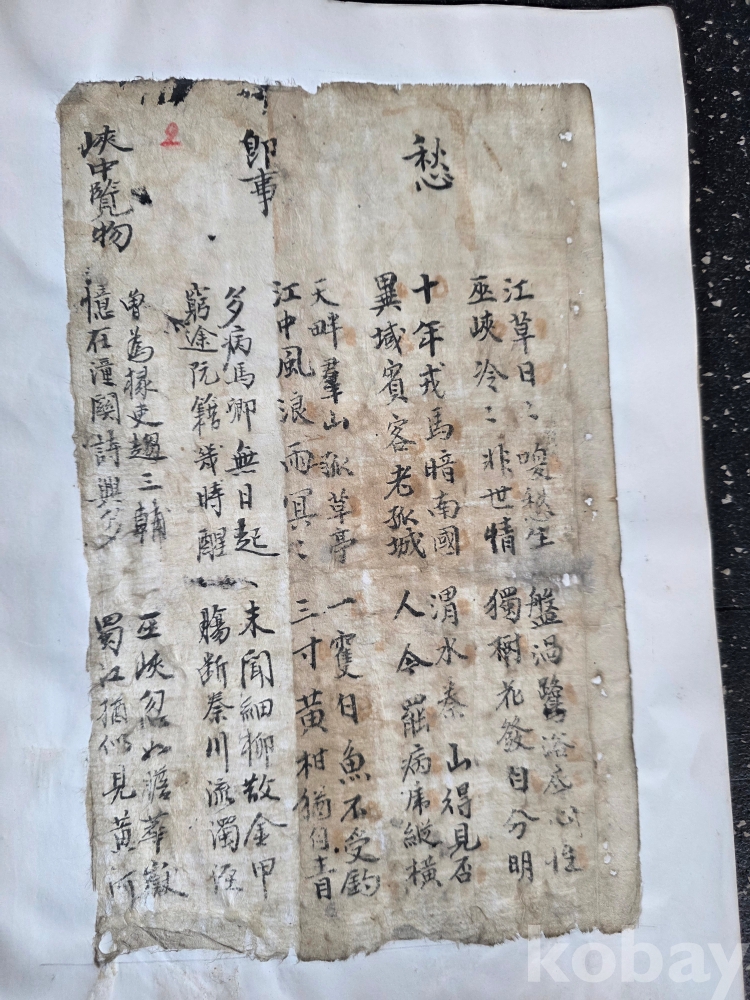 愁
江草日〻喚愁生 盤渦鷺浴底心性
巫峽冷〻非世情 獨樹花發自分明
十年戎馬暗南國 渭水秦山得見否
異域賓客老孤城 人今罷病虎縱橫
即事
天畔羣山孤草亭 一雙白魚不受釣
江中風浪雨冥〻 三寸黃柑猶自青
多病馬卿無日起 未聞細柳散金甲
窮途阮籍幾時醒 膓斷秦川流濁涇
2
峽中覽物
曾為掾吏趨三輔 巫峽忽如瞻華嶽
憶在潼關詩興多 蜀江猶似見黃河
kobay